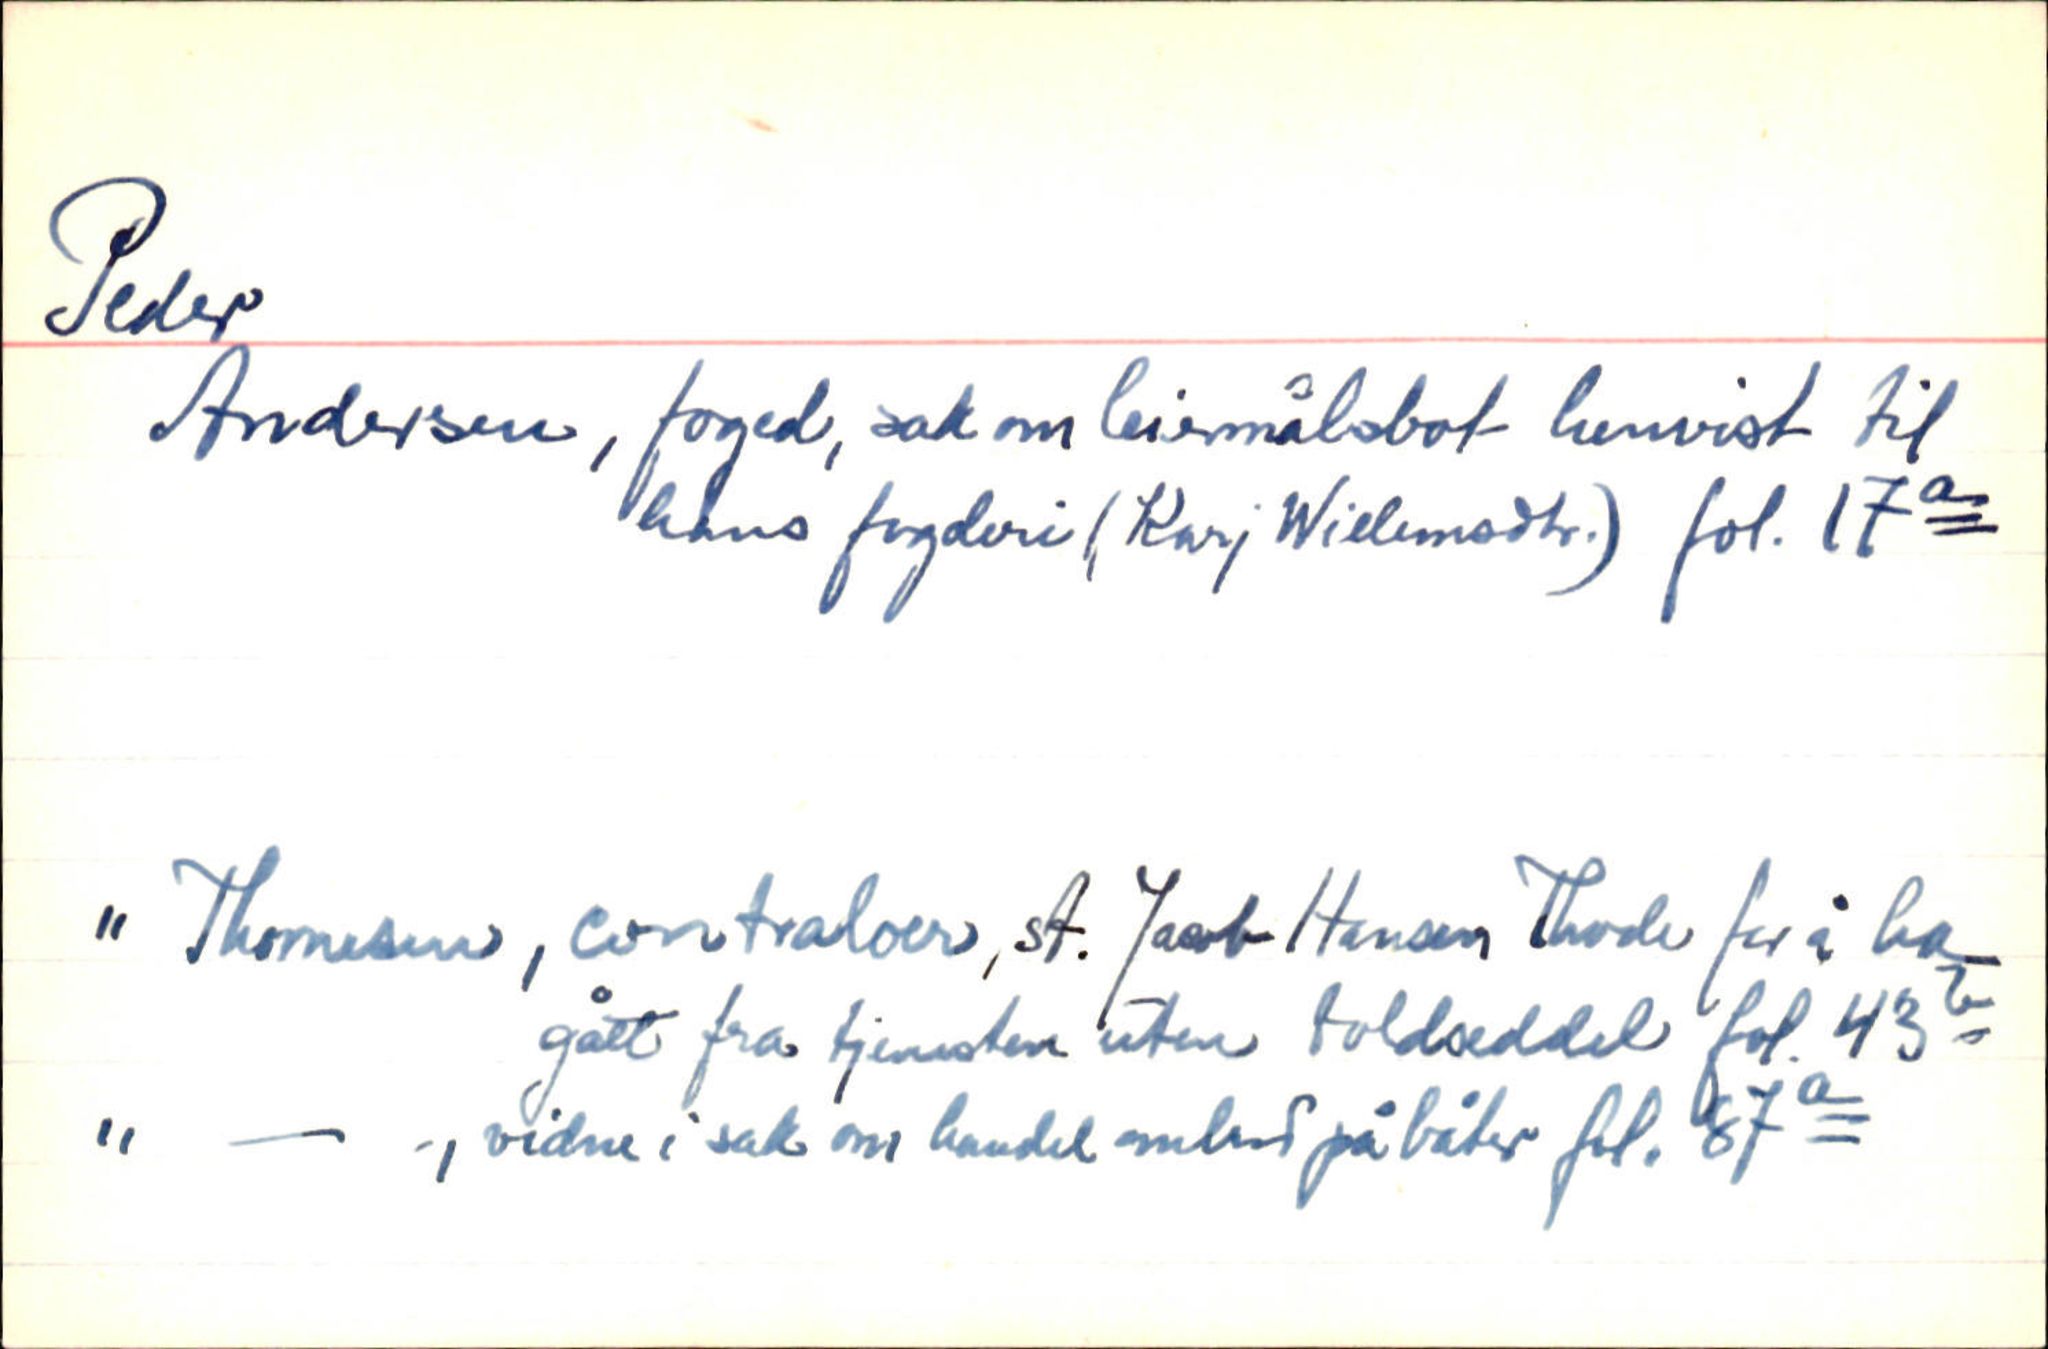 Peder
Andersen, foged, sak om leiermålsbot henvist til
hans fogderi (Karj Willemsdtr.) fol. 17a
" Thomesen, contraloer, st. Jacob Hansen Thode for å ha
gått fra tjenesten uten toldseddel fol. 43b
" — -, vidne i sak om handel ombord på båter fol. 87a